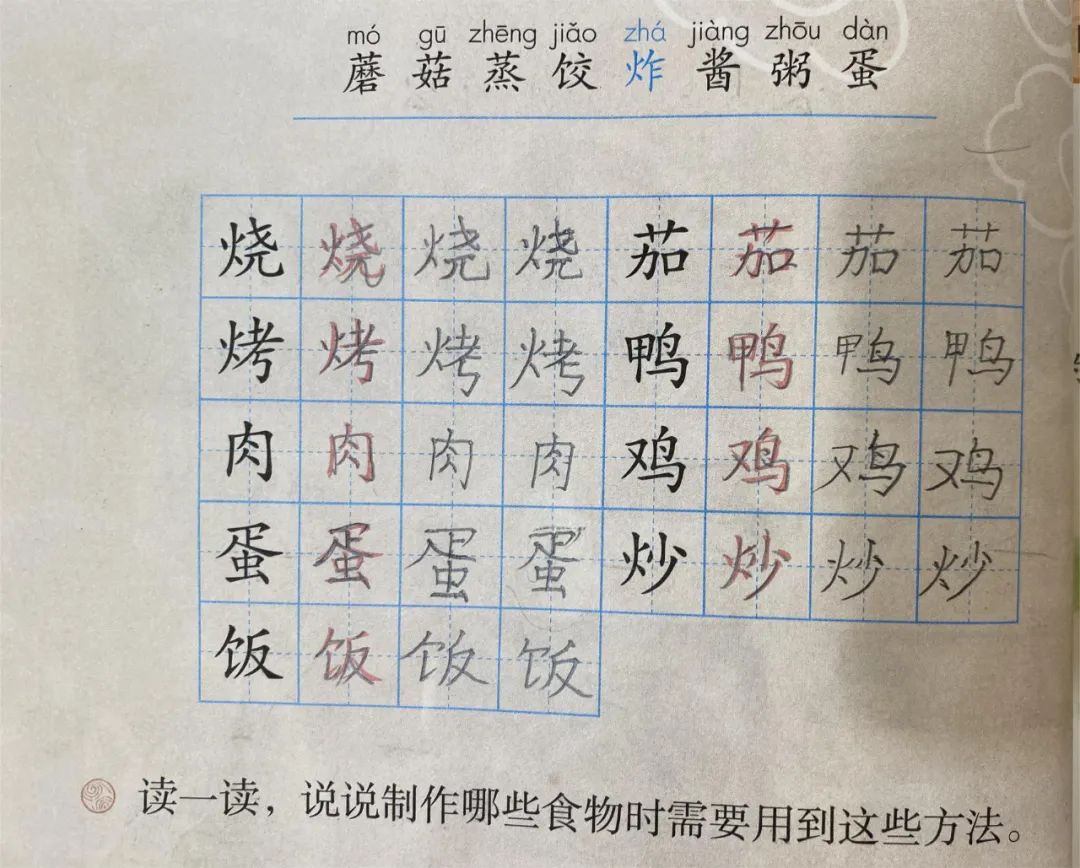 mó gū zhēng jiǎo zhá jiàng zhōu dàn
蘑 菇 蒸 饺 炸 酱 粥 蛋
烧 烧 烧 烧 茄 茄 茄 茄
烤 烤 烤 烤 鸭 鸭 鸭 鸭
肉 肉 肉 肉 鸡 鸡 鸡 鸡
蛋 蛋 蛋 蛋 炒 炒 炒 炒
饭 饭 饭 饭
读一读，说说制作哪些食物时需要用到这些方法。